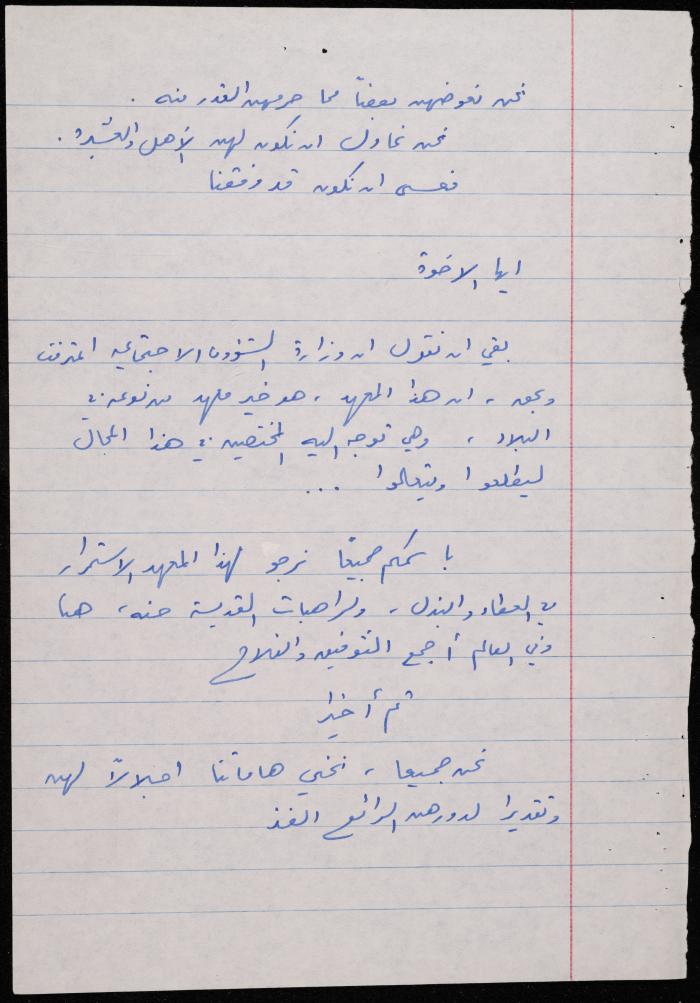 نحن نعوضهن بعضاً مما حرمهن القدر منه .
نحن نحاول ان نكون لهن الأهل والعشيرة .
فعسى ان نكون قد وفقنا
ايها الاخوة
بقي ان نقول ان وزارة الشؤون الاجتماعيه اعترفت
وبحق ، ان هذا المعهد ، هو خير معهد من نوعه في
البلاد ، وهي توجه اليه المختصين في هذا المجال
ليطلعوا ويتعلموا ...
باسمكم جميعاً نرجو لهذا المعهد الاستمرار
في العطاء والبذل ، ولراهبات القديسة حنه ، هنا
وفي العالم أجمع التوفيق والفلاح
ثم أخيرا
نحن جميعا ، نحني هاماتنا اجلالاً لهن
وتقديرا لدورهن الرائع الفذ